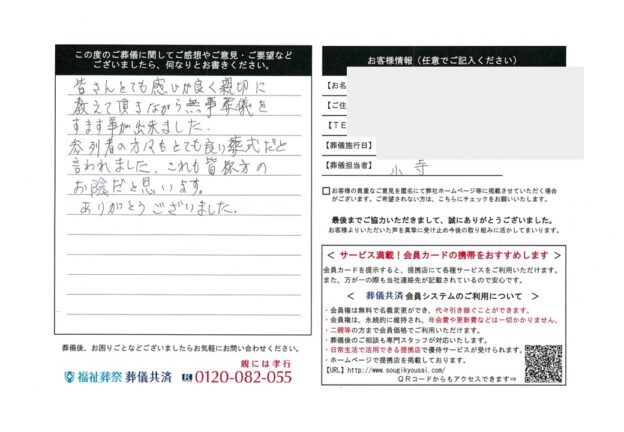 この度のご葬儀に関してご感想やご意見・ご要望など
ございましたら、何なりとお書きください。
皆さんとても感じが良く親切に
教えて頂きながら無事葬儀を
すます事が出来ました.
参列者の方々もとても良い葬式だと
言われました.これも皆様方の
お陰だと思います。
ありがとうございました.
葬儀後、お困りごとなどございましたらお気軽にお問い合わせください。
親には孝行
福祉葬祭 葬儀共済 0120-082-055
お客様情報(任意でご記入ください)
【お名
【ご住
【TE
【葬儀施行日】
【葬儀担当者】 小寺
お客様の貴重なご意見を匿名にて弊社ホームページ等に掲載させていただく場合
がございます。ご希望されない方は、こちらにチェックをお願いいたします。
最後までご協力いただきまして、誠にありがとうございました。
お客様よりいただいた声を真摯に受け止め今後の取り組みに活かしてまいります。
< サービス満載!会員カードの携帯をおすすめします >
会員カードを提示すると、提携店にて各種サービスをご利用いただけます。
また、万が一の際も当社連絡先が記載されているので安心です。
< 葬儀共済 会員システムのご利用について >
・会員権は無料で名義変更ができ、代々引き継ぐことができます。
・会員権は、永続的に維持され、年会費や更新費などは一切かかりません。
・二親等の方まで会員価格でご利用いただけます。
・葬儀後のご相談も専門スタッフが対応いたします。
・日常生活で活用できる提携店で優待サービスが受けられます。
・ホームページで提携店を掲載しております。
【URL】http://www.sougikyousai.com/
QRコードからもアクセスできます⇒